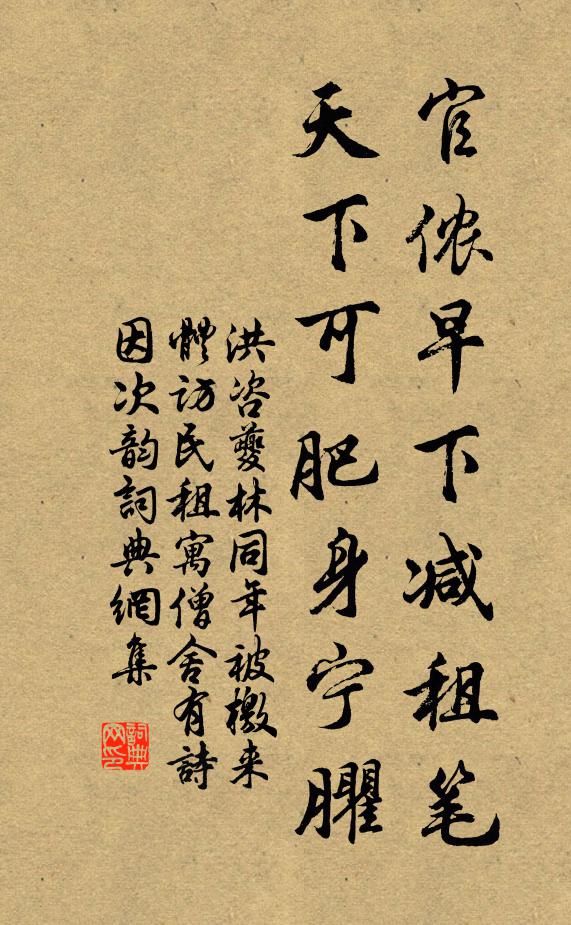 官侬早下减租笔
天下可肥身宁臞
洪咨夔林同年被檄来
體访民租寓僧舍有詩
因次韵詞典網集
詞典网印